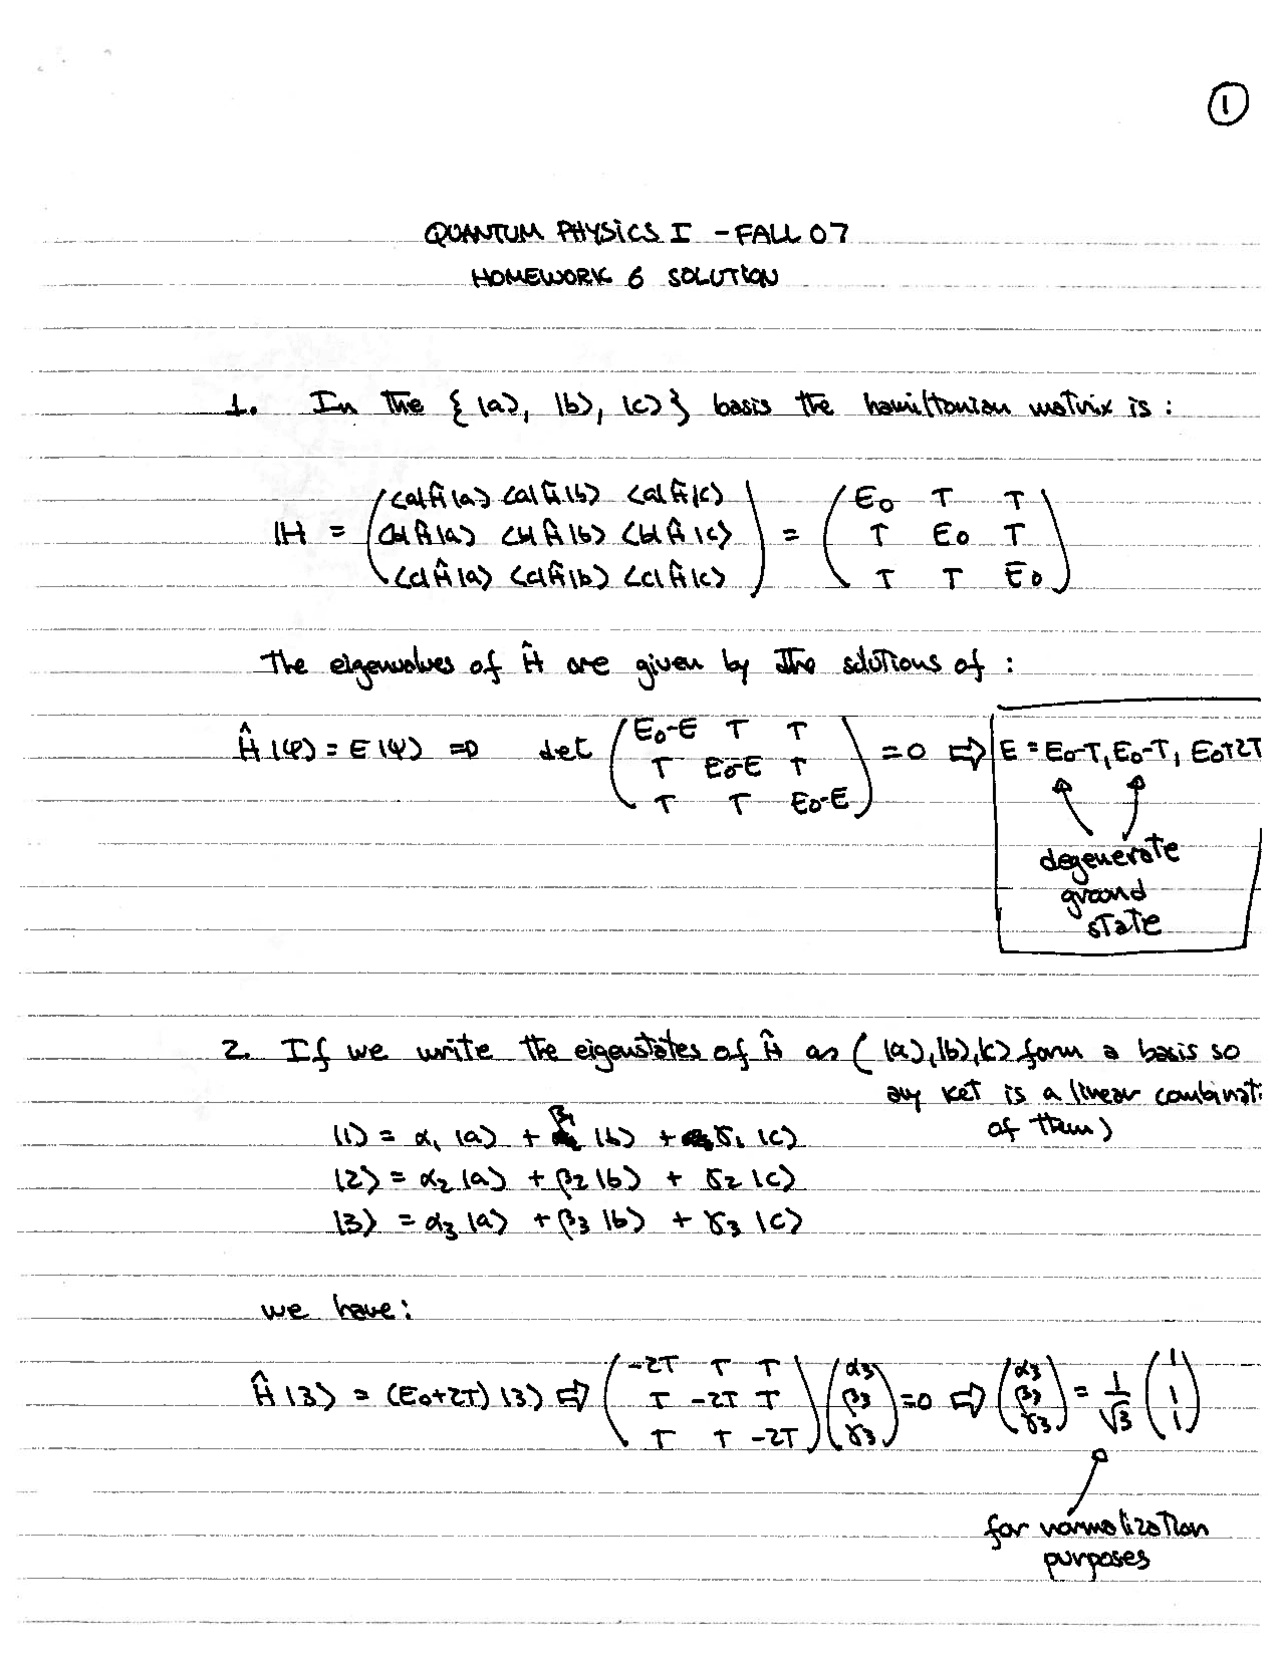 ①
QUANTUM PHYSICS I - FALL 07
HOMEWORK 6 SOLUTION
1. In the { |a⟩, |b⟩, |c⟩ } basis the hamiltonian matrix is :
ℍ = ( ⟨a|Ĥ|a⟩ ⟨a|Ĥ|b⟩ ⟨a|Ĥ|c⟩ ; ⟨b|Ĥ|a⟩ ⟨b|Ĥ|b⟩ ⟨b|Ĥ|c⟩ ; ⟨c|Ĥ|a⟩ ⟨c|Ĥ|b⟩ ⟨c|Ĥ|c⟩ ) = ( E₀ T T ; T E₀ T ; T T E₀ )
The eigenvalues of Ĥ are given by the solutions of :
Ĥ |ψ⟩ = E |ψ⟩ ⇒ det ( E₀-E T T ; T E₀-E T ; T T E₀-E ) = 0 ⇒ E = E₀-T, E₀-T, E₀+2T
degenerate
ground
state
2. If we write the eigenstates of Ĥ as ( |a⟩, |b⟩, |c⟩ form a basis so
any ket is a linear combinati
of them )
|1⟩ = α₁ |a⟩ + β₁ |b⟩ + γ₁ |c⟩
|2⟩ = α₂ |a⟩ + β₂ |b⟩ + γ₂ |c⟩
|3⟩ = α₃ |a⟩ + β₃ |b⟩ + γ₃ |c⟩
we have :
Ĥ |3⟩ = (E₀+2T) |3⟩ ⇒ ( -2T T T ; T -2T T ; T T -2T ) ( α₃ ; β₃ ; γ₃ ) = 0 ⇒ ( α₃ ; β₃ ; γ₃ ) = 1/√3 ( 1 ; 1 ; 1 )
for normalization
purposes